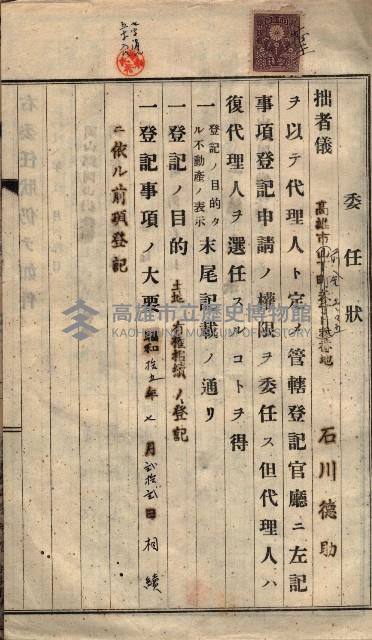 委任狀
高雄市
拙者儀
石川德助
ヲ以テ代理人ト定メ管轄登記官廳ニ左記
事項登記申請ノ權限ヲ委任ス但代理人ハ
復代理人ヲ選任スルコトヲ得
一登記ノ目的タル不動產ノ表示 末尾記載ノ通リ
一登記ノ目的 土地所有權移轉ノ登記
一登記事項ノ大要 昭和拾五年七月貳拾貳日相續
ニ依ル前項登記
高雄市立歷史博物館
KAOHSIUNG MUSEUM OF HISTORY